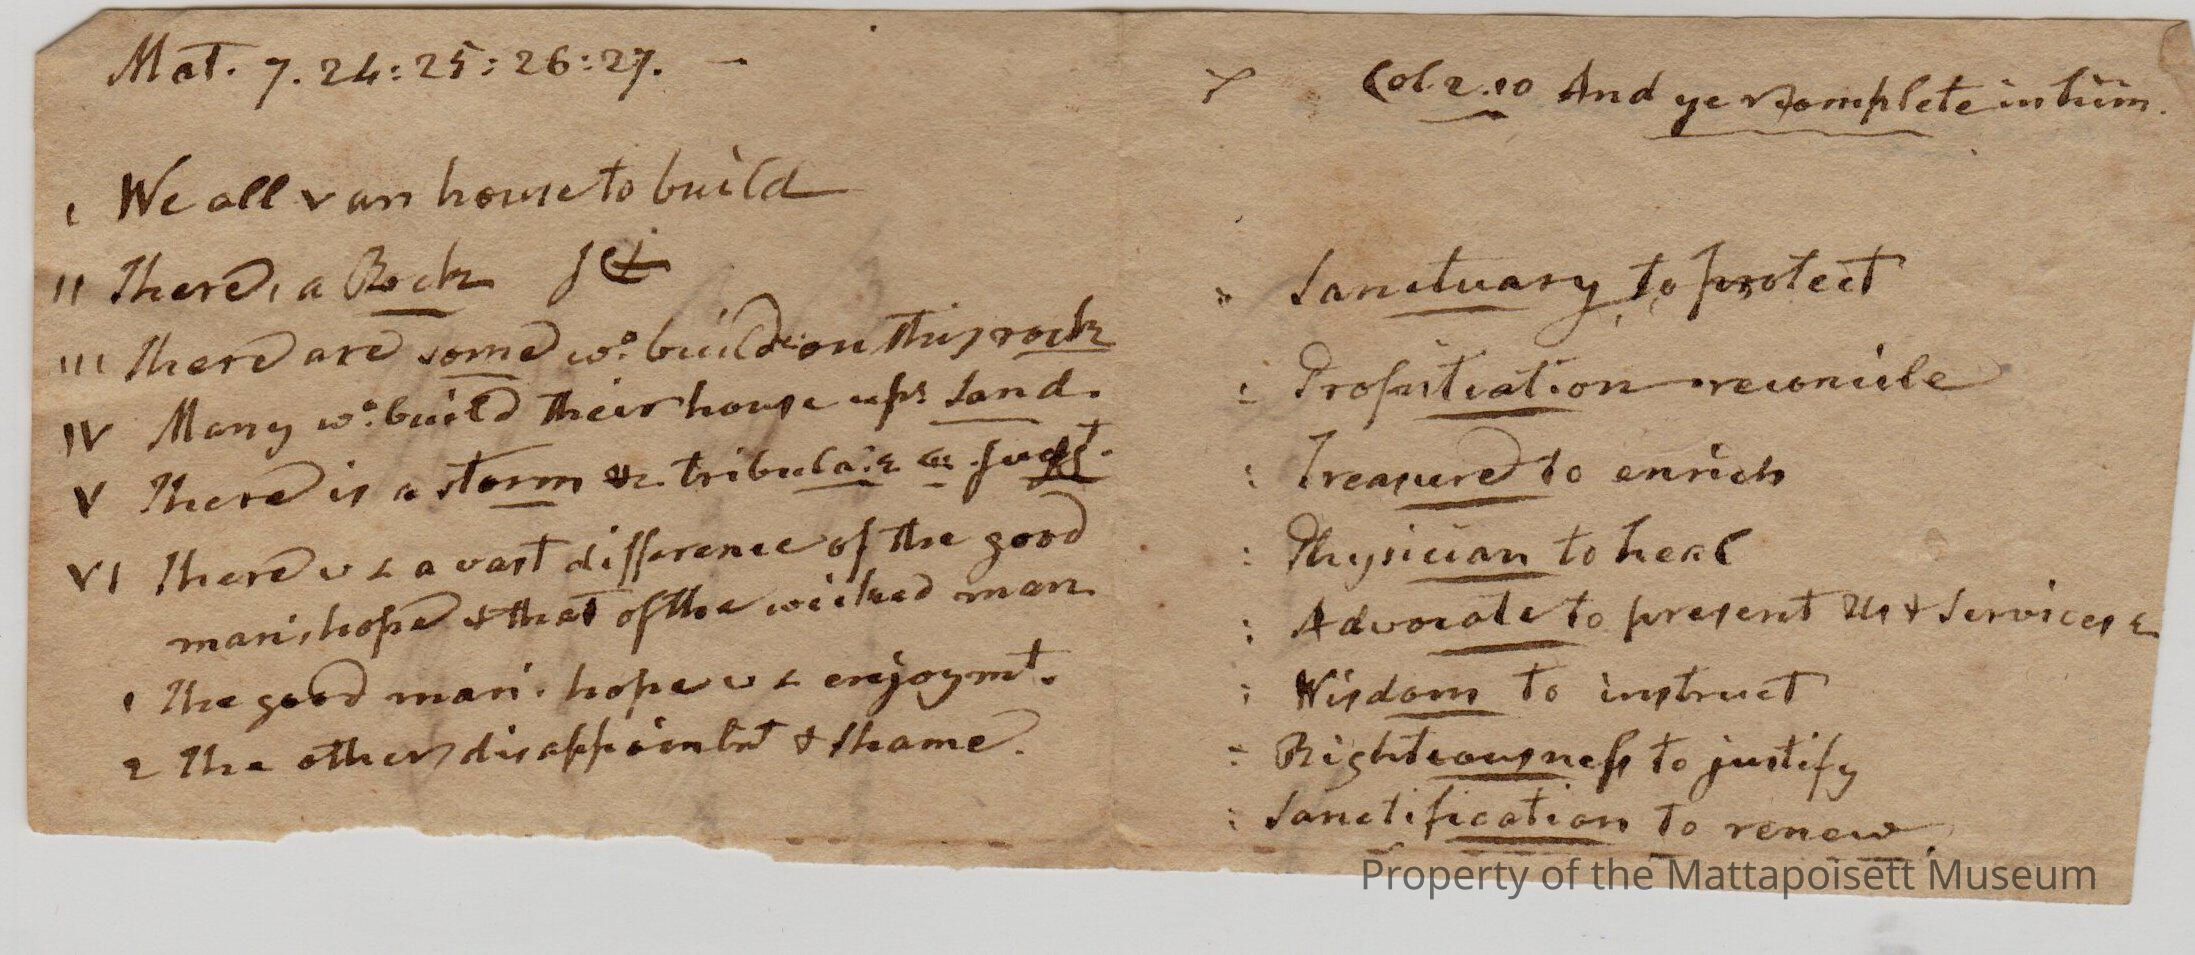 Mat. 7. 24: 25: 26: 27. —
I We all v an house to build
II There, a Rock
III There are some wo. build on this rock
IV Many wo. build their house upn sand.
V There is a storm tribula:
VI There is a vast difference of the good
man's hope & that of the wicked man
1 The good man's hope enjoymt.
2 The other disappointmt & shame.
Col. 2.10 And ye complete in him.
Sanctuary to protect
Propitiation reconcile
Treasure to enrich
Physician to heal
Advocate to present Us & Services &
Wisdom to instruct
Righteousness to justify
Sanctification to renew
Property of the Mattapoisett Museum